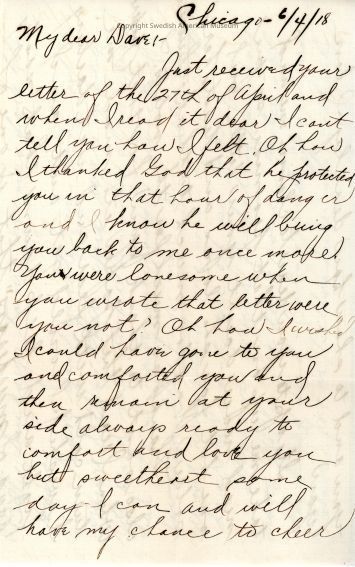 Chicago - 6/4/18
Copyright Swedish American Museum
My dear Dave:-
Just received your
letter of the 27th of April and
when I read it dear I cant
tell you how I felt. Oh how
I thanked God that he protected
you in that hour of danger
and I know he will bring
you back to me once more.
You were lonesome when
you wrote that letter were
you not? Oh how I wished
I could have gone to you
and comforted you and
then remain at your
side always ready to
comfort and love you
but sweetheart some
day I can and will
have my chance to cheer